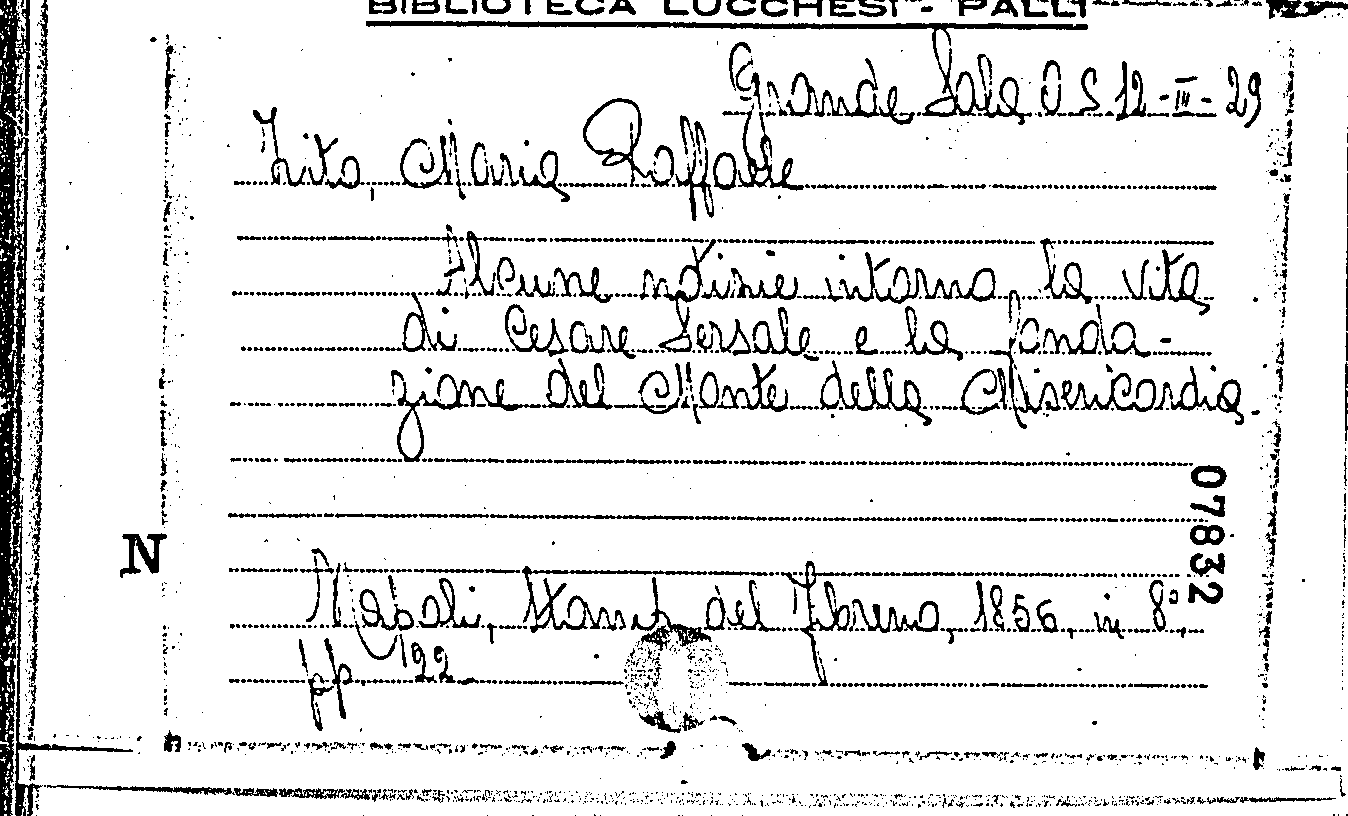 BIBLIOTECA LUCCHESI - PALLI
Grande Sala O S 12-III-29
Zito, Maria Raffaele
Alcune notizie intorno la vita
di Cesare Sersale e la fonda-
zione del Monte della Misericordia.
07832
N
Napoli, Stamp. del Fibreno, 1856, in 8º,
pp. 122.